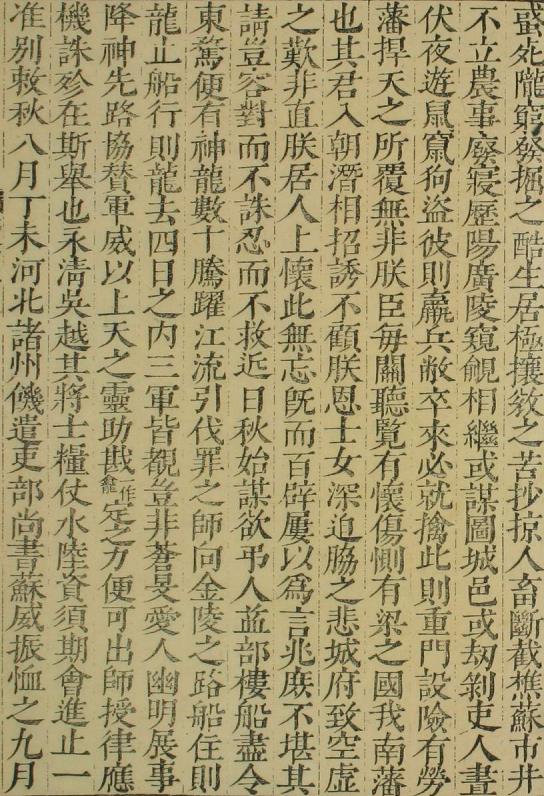 蜮死隴窮發掘之酷生居極攘敓之苦抄掠人畜斷截樵蘇市井
不立農事廢寢歷陽廣陵窺覦相繼或謀圖城邑或刼剝吏人晝
伏夜遊鼠竄狗盗彼則羸兵敝卒來必就擒此則重門設險有勞
藩捍天之所覆無非朕臣每關聽覽有懷傷惻有梁之國我南藩
也其君入朝潛相招誘不顧朕恩士女深迫脇之悲城府致空虛
之歎非直朕居人上懷此無忘旣而百辟屢以爲言兆庶不堪其
請豈容對而不誅忍而不救近日秋始謀欲弔人益部樓船盡令
東騖便有神龍數十騰躍江流引伐罪之師向金陵之路船住則
龍止船行則龍去四日之內三軍皆覩豈非蒼旻愛人幽明展事
降神先路協贊軍威以上天之靈助戡一作龕定之力便可出師授律應
機誅殄在斯舉也永淸吳越其將士糧仗水陸資須期會進止一
准别敕秋八月丁未河北諸州饑遣吏部尚書蘇威振恤之九月